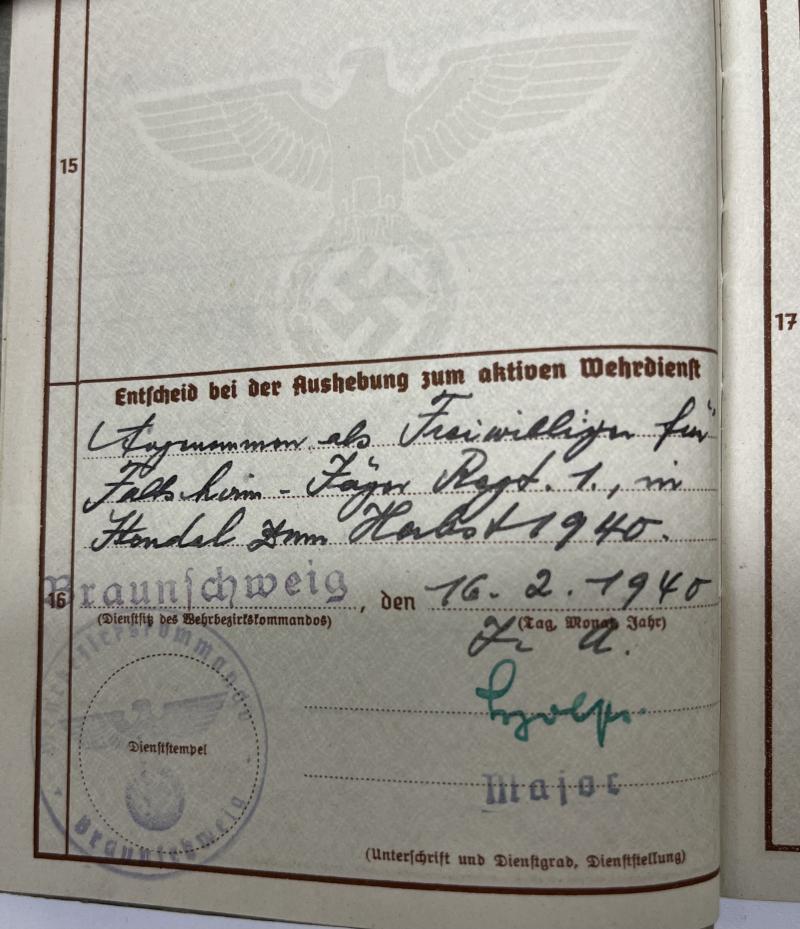 15
Entscheid bei der Aushebung zum aktiven Wehrdienst
Angenommen als Freiwilliger für
Fallschirm-Jäger Regt. 1., in
Stendal zum Herbst 1940.
16
Braunschweig, den 16. 2. 1940
(Dienstsitz des Wehrbezirkskommandos) (Tag, Monat, Jahr)
I. A.
Dienststempel
Wehrbezirkskommando
Braunschweig
Major
(Unterschrift und Dienstgrad, Dienststellung)
17